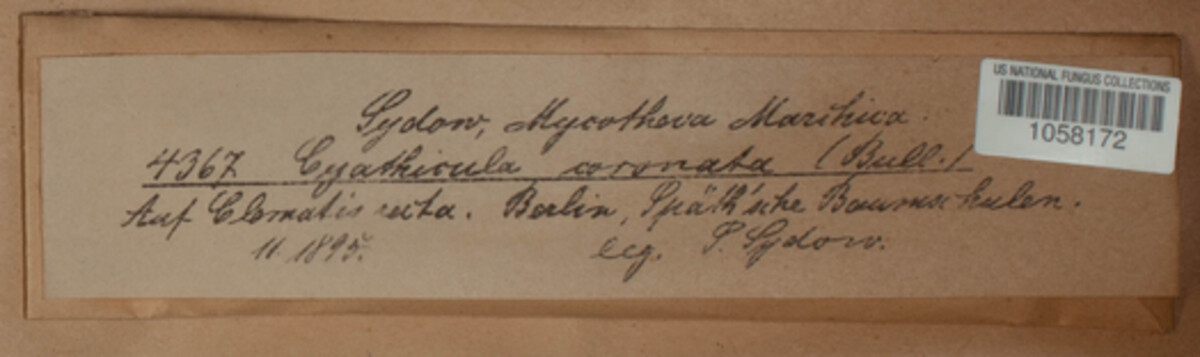 US NATIONAL FUNGUS COLLECTIONS
1058172
Sydow, Mycotheca Marchica.
4367 Cyathicula coronata (Bull.)
Auf Clematis recta. Berlin, Späth'sche Baumschulen.
11. 1895. leg. P. Sydow.